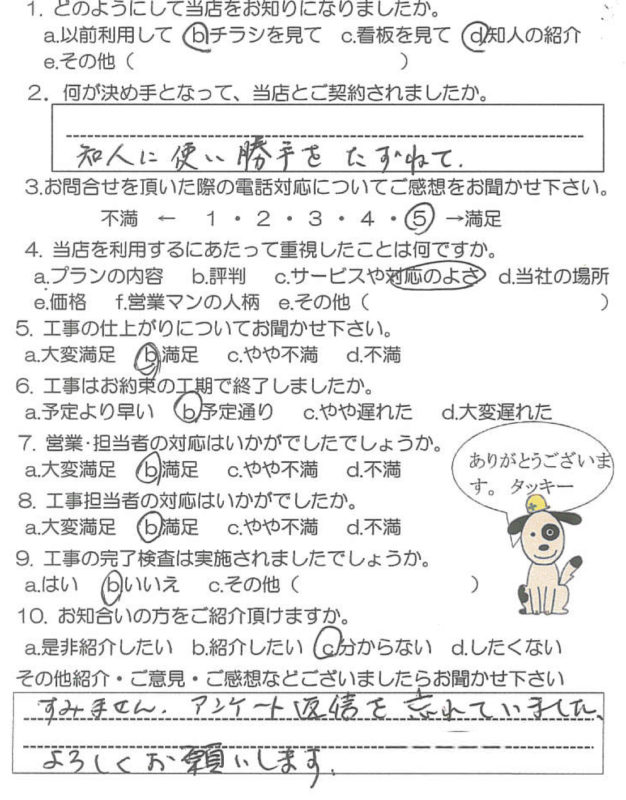 1. どのようにして当店をお知りになりましたか。
a.以前利用して b.チラシを見て c.看板を見て d.知人の紹介
e.その他（ ）
2. 何が決め手となって、当店とご契約されましたか。
知人に使い勝手をたずねて.
3.お問合せを頂いた際の電話対応についてご感想をお聞かせ下さい。
不満 ← 1・2・3・4・5 →満足
4. 当店を利用するにあたって重視したことは何ですか。
a.プランの内容 b.評判 c.サービスや対応のよさ d.当社の場所
e.価格 f.営業マンの人柄 e.その他（ ）
5. 工事の仕上がりについてお聞かせ下さい。
a.大変満足 b.満足 c.やや不満 d.不満
6. 工事はお約束の工期で終了しましたか。
a.予定より早い b.予定通り c.やや遅れた d.大変遅れた
7. 営業・担当者の対応はいかがでしたでしょうか。
a.大変満足 b.満足 c.やや不満 d.不満
ありがとうございま
す。 タッキー
8. 工事担当者の対応はいかがでしたか。
a.大変満足 b.満足 c.やや不満 d.不満
9. 工事の完了検査は実施されましたでしょうか。
a.はい b.いいえ c.その他（ ）
10. お知合いの方をご紹介頂けますか。
a.是非紹介したい b.紹介したい c.分からない d.したくない
その他紹介・ご意見・ご感想などございましたらお聞かせ下さい
すみません. アンケート返信を忘れていました、
よろしくお願いします.